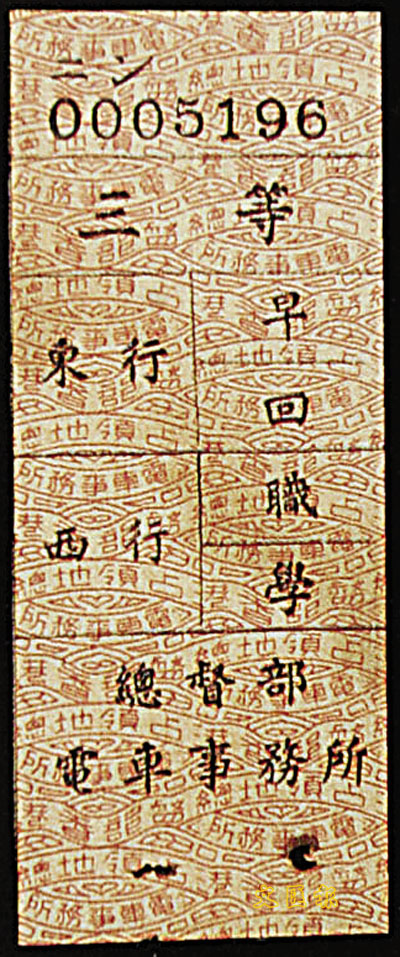 ニン
0005196
三等
東行
西行
早
回
職
學
總督部
電車事務所